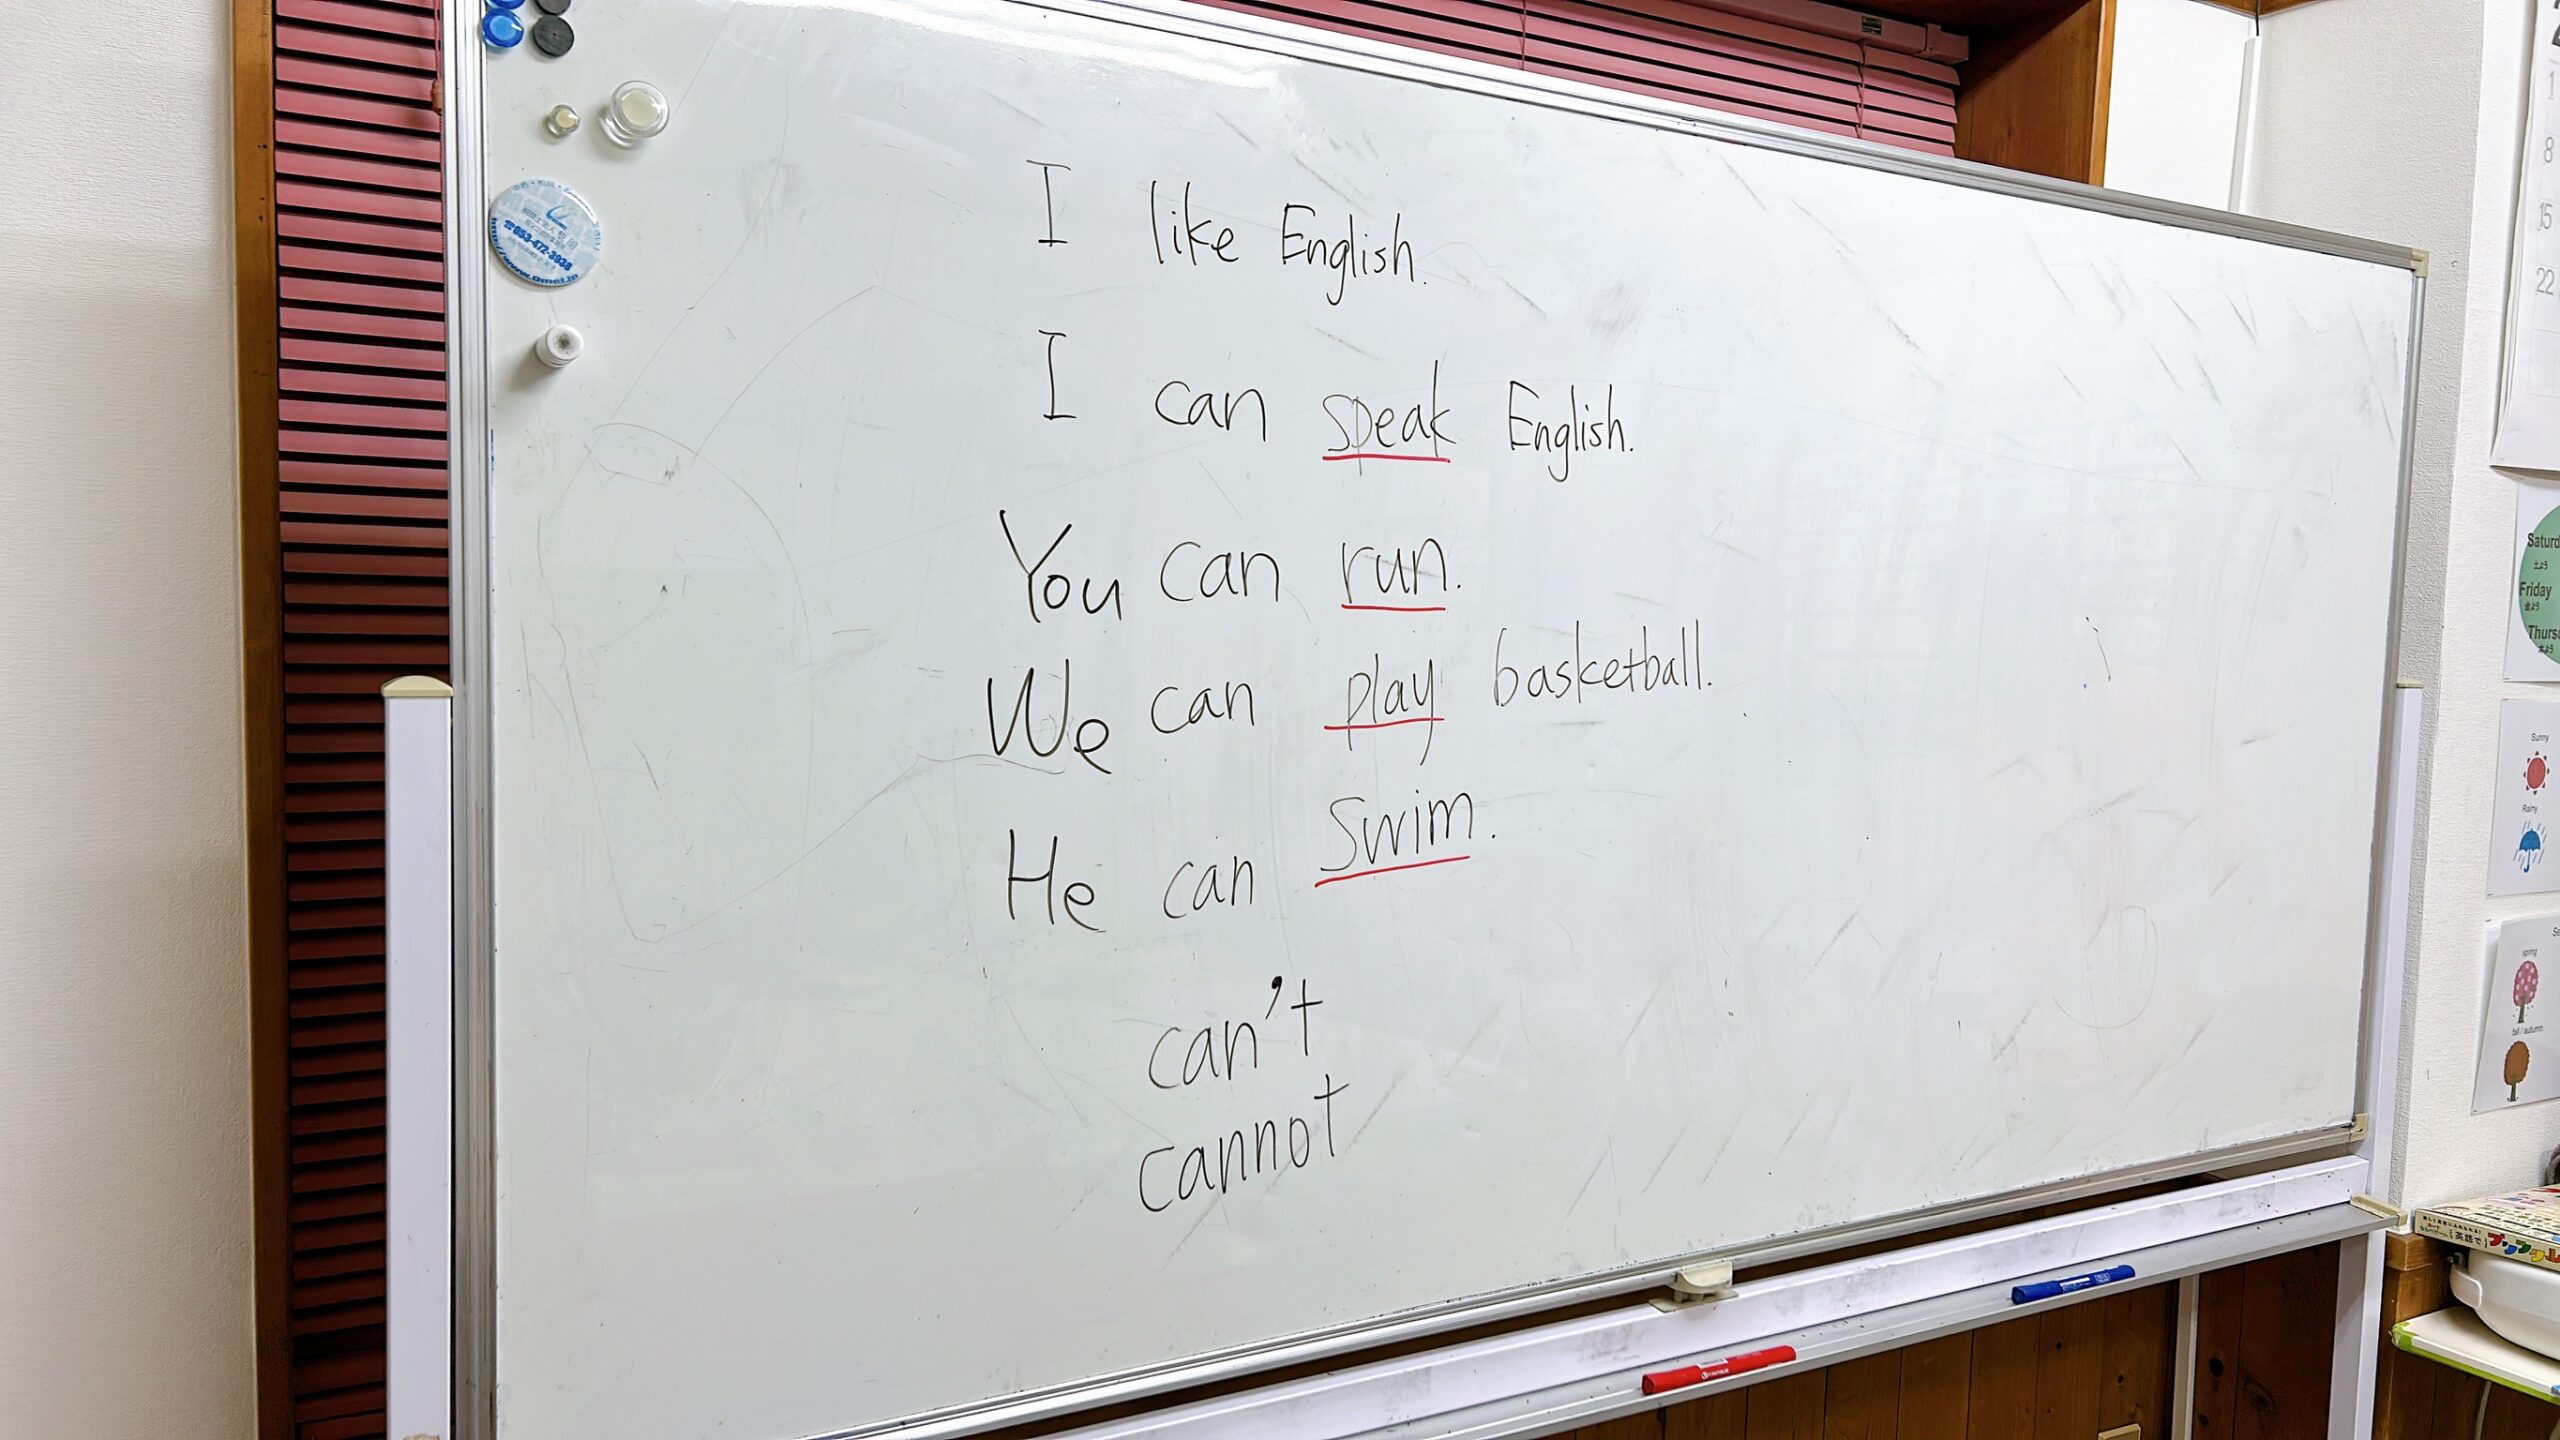 I like English.
I can speak English.
You can run.
We can play basketball.
He can swim.
can't
cannot
053-472-3938
1
8
15
22
Friday
金よう
土よう
木よう
Sunny
Rainy
spring
fall / autumn
英語で